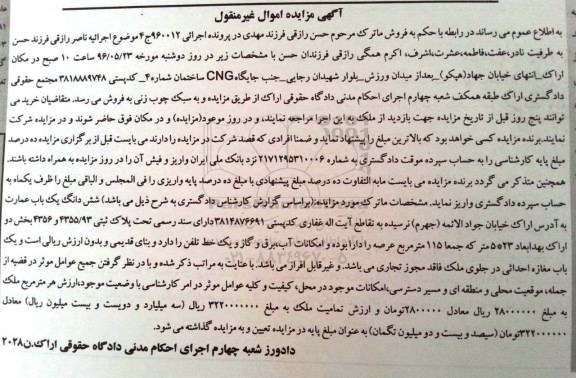 آگهی مزایده اموال غیرمنقول
به اطلاع عموم می رساند در رابطه با حکم به فروش ماترک مرحوم حسن رازقی فرزند مهدی در پرونده اجرائی ۹۶۰۰۱۲ج۴ موضوع اجرائیه ناصر رازقی فرزند حسن
به طرفیت نادر،عفت،فاطمه،عشرت،اشرف، اکرم همگی رازقی فرزندان حسن با مشخصات زیر در روز دوشنبه مورخه ۹۶/۰۵/۲۳ ساعت ۱۰ صبح در مکان
اراک_انتهای خیابان جهاد(هپکو)_بعداز میدان ورزش_بلوار شهیدان رجایی_جنب جایگاه CNG ساختمان شماره۴_ کدپستی ۳۸۱۸۸۸۹۷۴۸ مجتمع حقوقی
دادگستری اراک طبقه همکف شعبه چهارم اجرای احکام مدنی دادگاه حقوقی اراک از طریق مزایده و به سبک چوب زنی به فروش می رسد. متقاضیان خرید می
توانند پنج روز قبل از تاریخ مزایده جهت بازدید از ملک به این اجرا مراجعه نمایند، و در روز موعود(مزایده) و در مکان فوق حاضر شوند و در مزایده شرکت
نمایند.برنده مزایده کسی خواهد بود که بالاترین مبلغ را پیشنهاد نماید و ضمنا افرادی که قصد شرکت در مزایده را دارند می بایست قبل از برگزاری مزایده ده درصد
مبلغ پایه کارشناسی را به حساب سپرده موقت دادگستری به شماره ۲۱۷۱۲۹۵۳۱۰۰۰۶ نزد بانک ملی ایران واریز و فیش آن را در روز مزایده به همراه داشته باشند.
همچنین متذکر می گردد برنده مزایده می بایست مابه التفاوت ده درصد مبلغ پیشنهادی با مبلغ ده درصد پایه واریزی را فی المجلس و الباقی مبلغ را ظرف یکماه به
حساب سپرده دادگستری واریز نماید. مشخصات ماترک مورد مزایده:(براساس گزارش کارشناس دادگستری به شرح ذیل می باشد) شش دانگ یک باب عمارت
به آدرس اراک خیابان جواد الائمه (جهرم) نرسیده به تقاطع آیت اله غفاری کدپستی ۳۸۱۴۸۷۶۶۹۱ دارای سند رسمی تحت پلاک ثبتی ۴۳۵۵/۹۳ و ۴۳۵۶ بخش دو
اراک بهدابعاد ۲۳×۵ متر که جمعا ۱۱۵ مترمربع عرصه را دارا بوده و امکانات آب،برق و گاز و یک خط تلفن را دارد و بنای قدیمی و بدون ارزش ریالی است و یک
باب مغازه احداثی در جلوی ملک فاقد مجوز تجاری می باشد. و غیرقابل افراز می باشد. با عنایت به مراتب ذکر شده و با در نظر گرفتن جمیع عوامل موثر در قضیه از
جمله، موقعیت محلی و منطقه ای و مسیر دسترسی،امکانات موجود در محل، کیفیت و کلیه عوامل موثر در امر کارشناسی با وضعیت موجود،ارزش هر مترمربع ملک
به مبلغ ۲۸۰۰۰۰۰۰ ریال معادل ۲۸۰۰۰۰۰تومان و ارزش تمامیت ملک به مبلغ ۳۲۲۰۰۰۰۰۰۰ ریال (سه میلیارد و دویست و بیست میلیون ریال) معادل
۳۲۲۰۰۰۰۰۰تومان (سیصد و بیست و دو میلیون تگمان) به عنوان مبلغ پایه در مزایده تعیین و به مزایده گذاشته می شود.
دادورز شعبه چهارم اجرای احکام مدنی دادگاه حقوقی اراک.ن۲۰۲۸